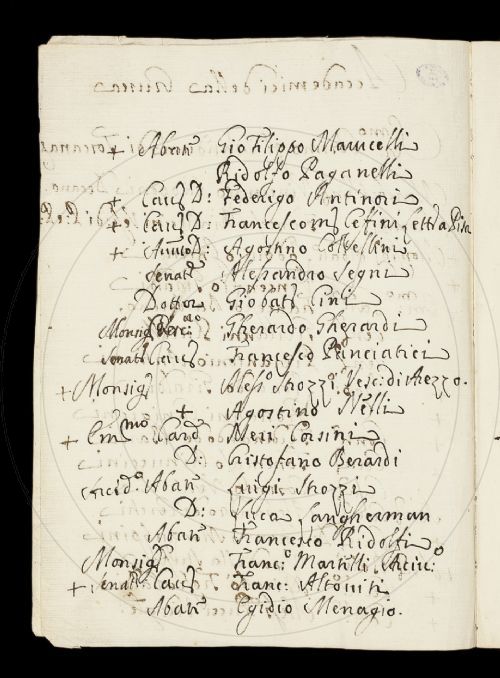 + Abate Gio Filippo Marucelli
Ridolfo Paganelli
+ Cav: D: Federigo Antinori
+ Cav: D: Francesco Ceffini Lett. a Pisa
+ D: Agostino Coltellini
Senat: Alessandro Segni
Dottor Giobat: Cini
Monsig: Gherardo Gherardi
Senat: Cav: Francesco Panciatici
+ Monsig: Aless: Strozzi Vesc: di Arezzo.
+ Agostino Nelli
+ Em:mo Card: Neri Corsini
D: Cristofano Berardi
Arcid:o Abate Luigi Strozzi
D: Luca Langherman
Abate Francesco Ridolfi
Monsig: Franc:o Martelli Arciv:o
+ Senat: Cav: Franc: Altoviti
Abate Egidio Menagio.